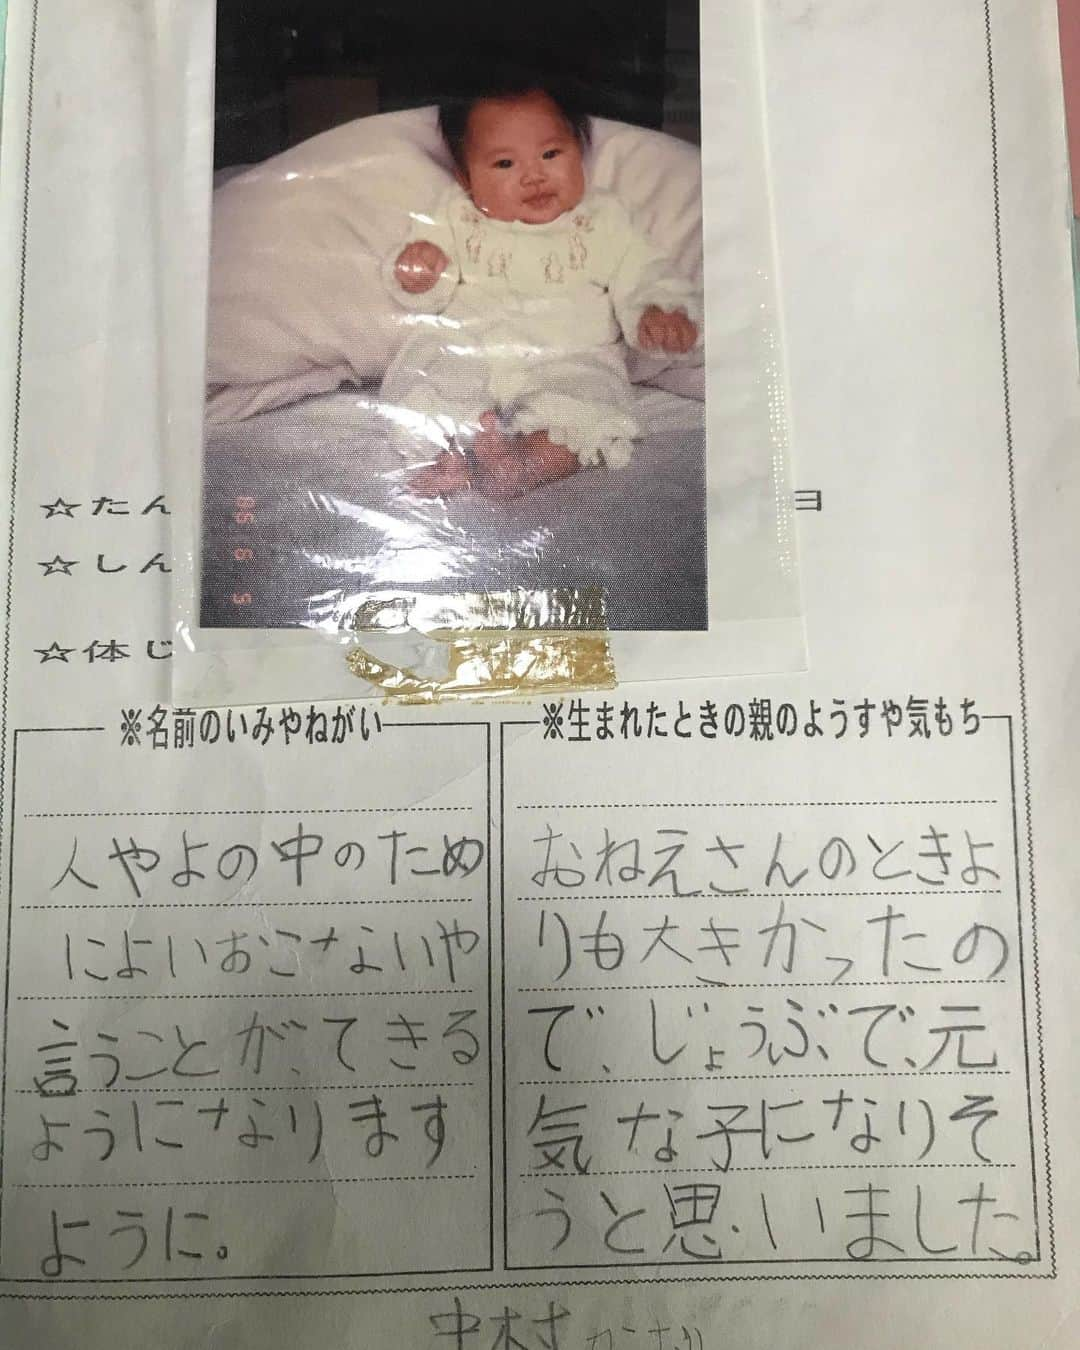 ☆たん
ヨ
☆しん
☆体じ
※名前のいみやねがい
人やよの中のため
によいおこないや
言うことが、てきる
ようになります
ように。
※生まれたときの親のようすや気もち
おねえさんのときよ
りも大きかったの
で、じょうぶで、元
気な子になりそ
うと思いました。
中村